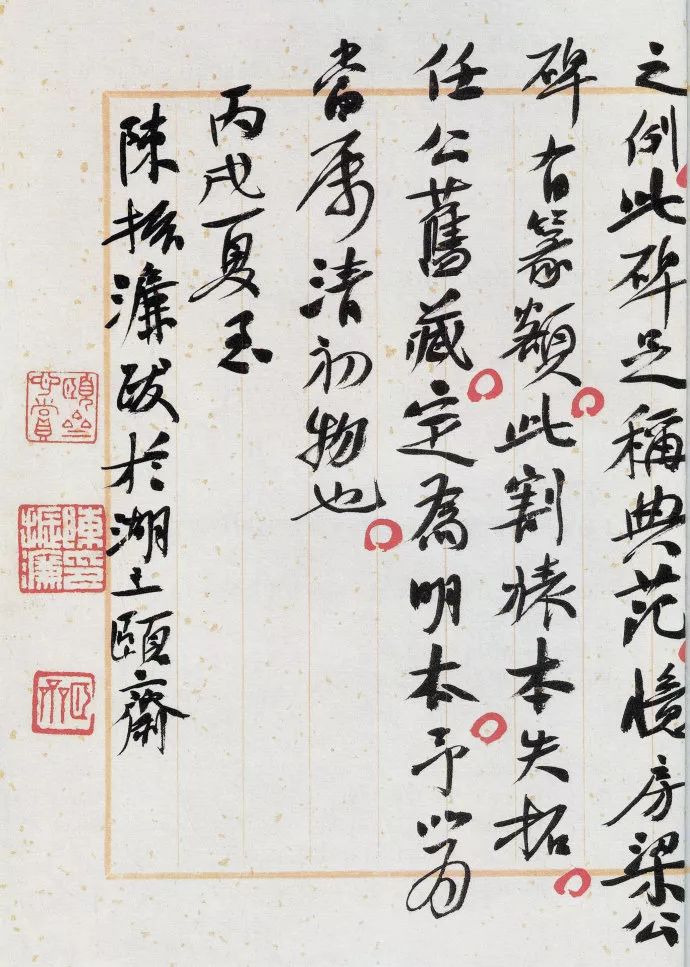 之例此碑足稱典范憶房梁公
碑有篆額此割裱本失拓
任公舊藏定為明本予以为
當属清初物也
丙戌夏至
陳振濂跋於湖上頤齋
頤齋心賞
陳振濂印